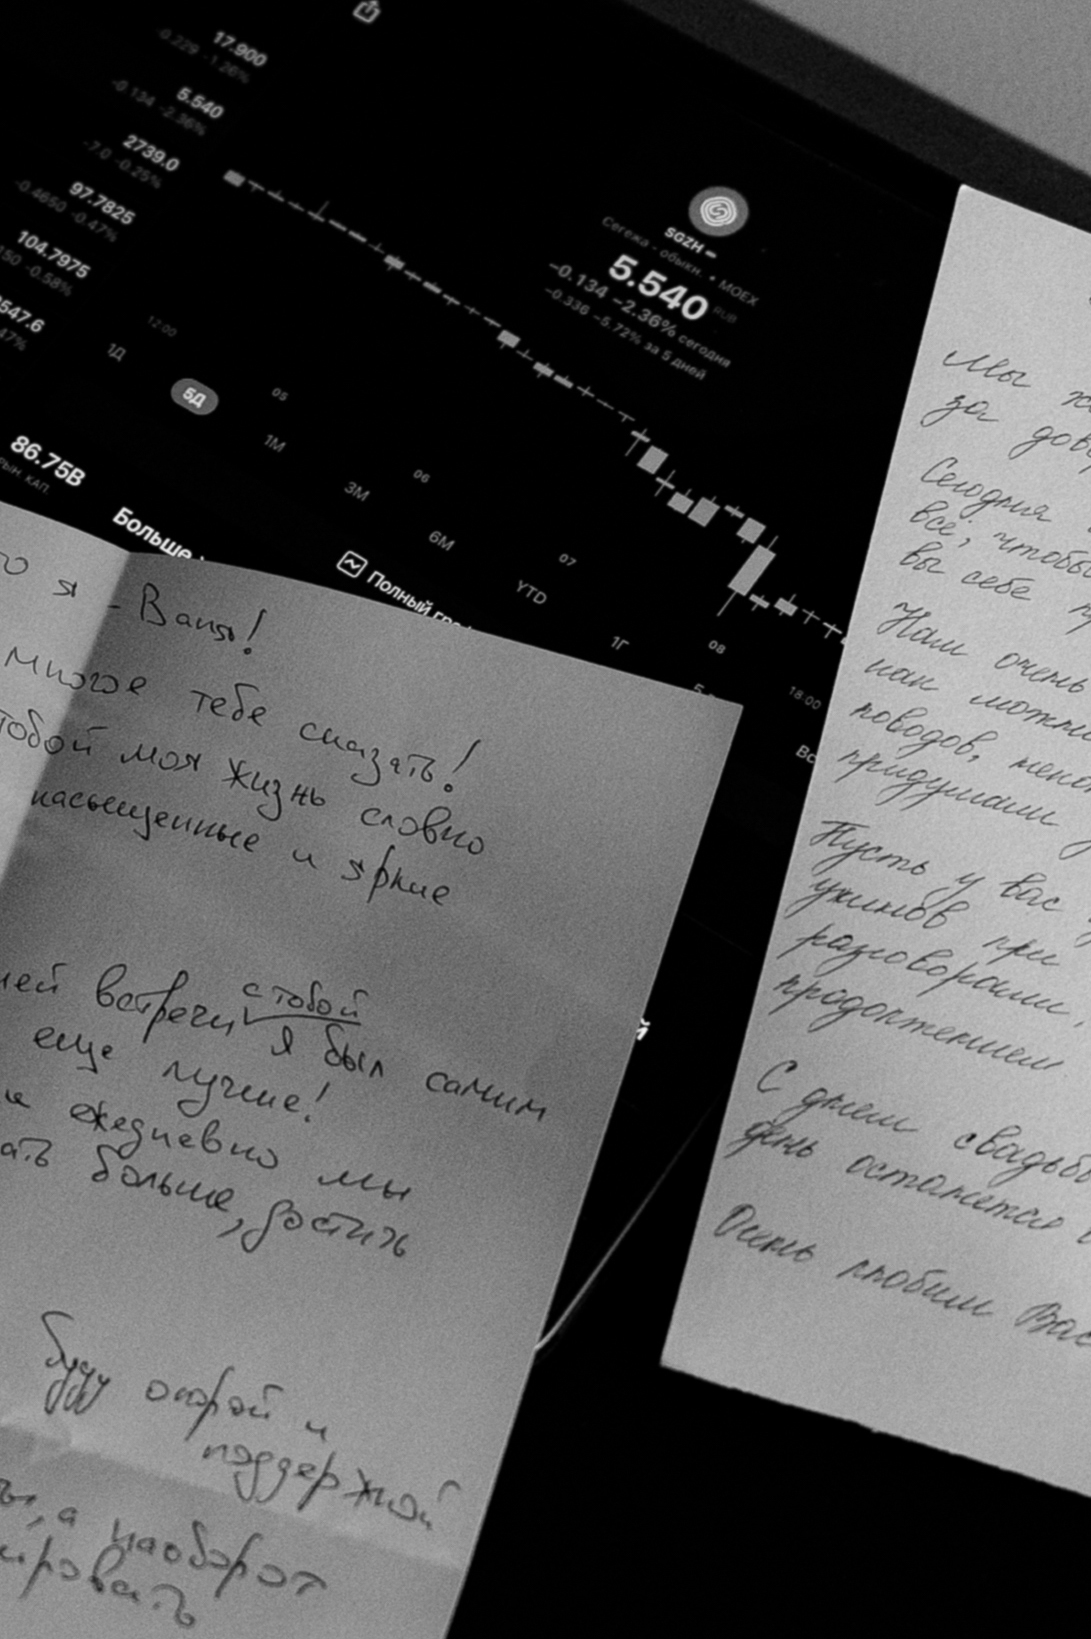 17.900
-0.229 -1.26%
5.540
-0.134 -2.36%
2739.0
-7.0 -0.25%
97.7825
-0.4650 -0.47%
104.7975
-0.58%
547.6
47%
SGZH
Сегежа - обыкн. • MOEX
5.540 RUB
-0.134 -2.36% сегодня
-0.336 -5.72% за 5 дней
12:00
05
06
07
08
18:00
1Д
5Д
1М
3М
6М
YTD
1Г
86.75B
Больше
Полный
я - Ваня!
многое тебе сказать!
тобой моя жизнь словно
насыщенные и яркие
ней встречи с тобой я был самим
еще лучше!
и ежедневно мы
ать больше, достичь
буду опорой и
поддержкой
ы, а наоборот
ировать
Мы
за
Сегодня
все, чтобы
вы себе
Нам очень
как можно
поводов,
придумали
Пусть у вас
ужинов при
разговорами
продолжением
С днем свадьбы
день останется
Очень любим Вас